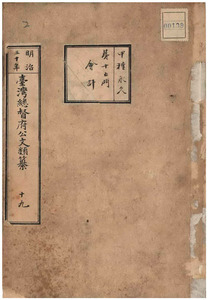 甲種永久
第十七門
會計
明治三十年
臺灣總督府公文類纂
十九